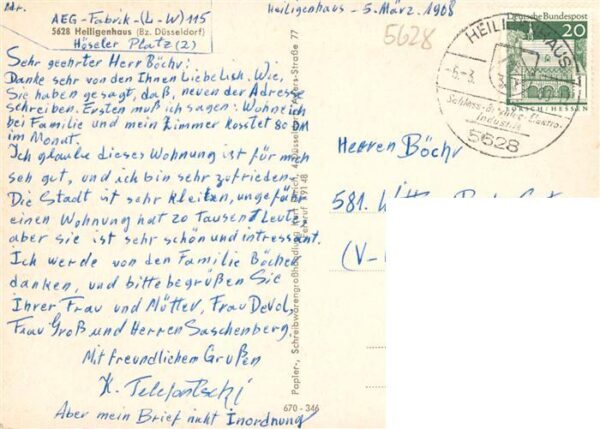 Adr.
AEG-Fabrik-(L-W) 115
5628 Heiligenhaus (Bz. Düsseldorf)
Höseler Platz (2)
Heiligenhaus - 5. März. 1968
Sehr geehrter Herr Böchv:
Danke sehr von den Ihnen Liebelish. Wie,
Sie haben gesagt, daß, neuen der Adresse
schreiben. Ersten muß ich sagen: Wohne ich
bei Familie und mein Zimmer kosstet 80 DM
im Monat.
Ich glaube dieses Wohnung ist für mich
seh gut, und ich bin sehr zufrieden.
Die Stadt ist sehr kleiten, ungeführ
einen Wohnung hat 20 Tausent Leute
aber sie ist sehr schön und intressant.
Ich werde von den Familie Böcher
danken, und bitte begrüßen Sie
Ihrer Frau und Mütter, Frau Devol,
Frau Groß und Herren Saschenberg.
Mit freundlichem Grußen
K.
Aber mein Brief nicht Inordnung
Papier-, Schreibwarengroßhandlung Düsseldorf Straße 77
670 - 346
5628
Deutsche Bundespost
20
LORSCH/HESSEN
HEILIGENHAUS
-5.-3.
Industrie
5628
Herren Böchv
581.
(V-